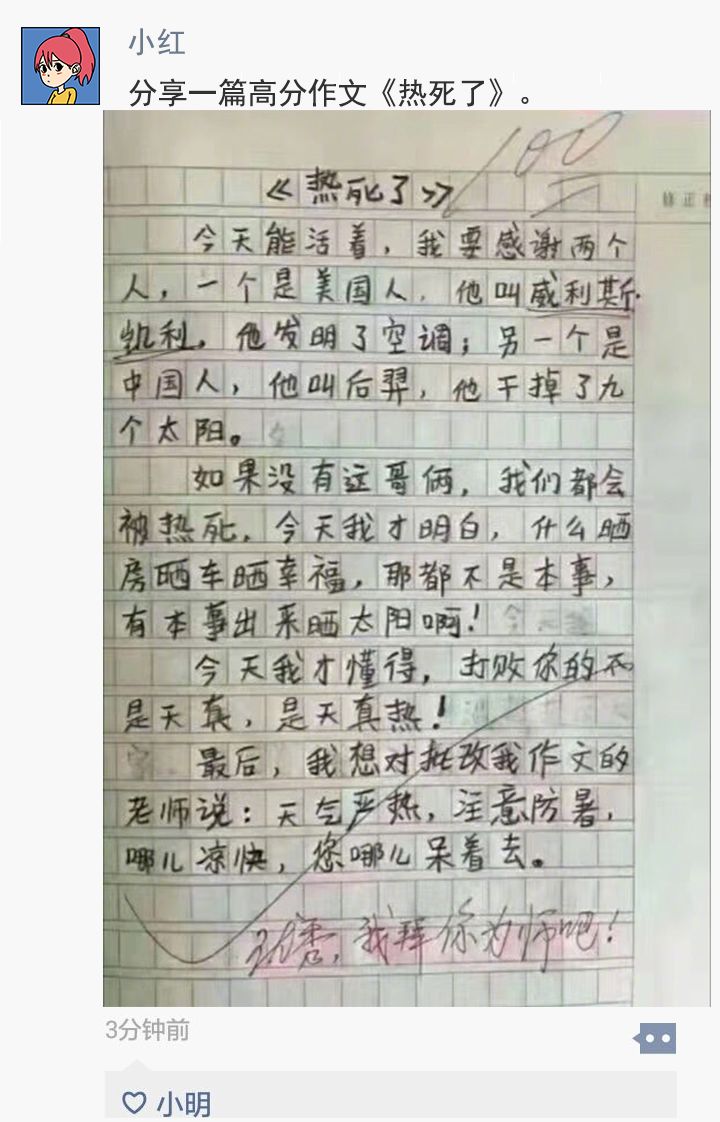 小红
分享一篇高分作文《热死了》。
100
《热死了》
修正
今天能活着，我要感谢两个
人，一个是美国人，他叫威利斯·
凯利，他发明了空调；另一个是
中国人，他叫后羿，他干掉了九
个太阳。
如果没有这哥俩，我们都会
被热死，今天我才明白，什么晒
房晒车晒幸福，那都不是本事，
有本事出来晒太阳啊！
今天我才懂得，打败你的不
是天真，是天真热！
最后，我想对批改我作文的
老师说：天气严热，注意防暑，
哪儿凉快，您哪儿呆着去。
优秀，我拜你为师吧！
3分钟前
小明